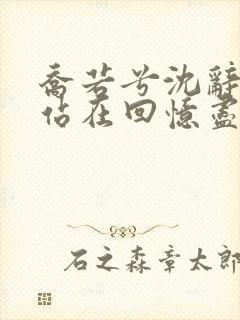 喬若兮沈辭
佔在回憶盡
石之森章太郎